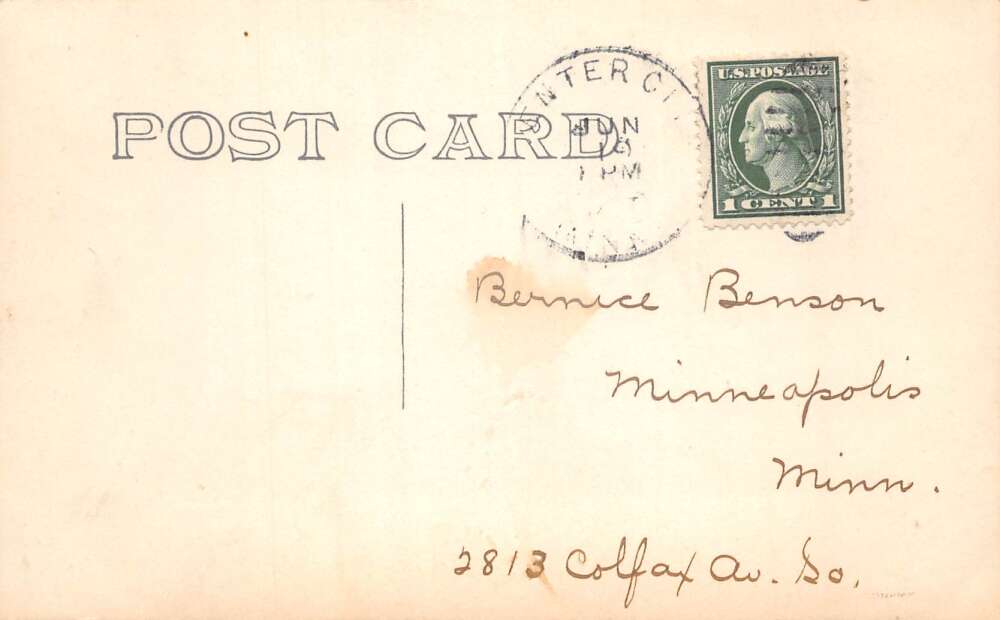 POST CARD
ENTER CI
JUN
1 PM
MINN
U.S. POSTAGE
1 CENT 1
Bernice Benson
Minneapolis
Minn.
2813 Colfax Av. So.